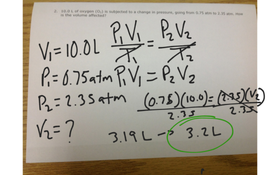 2. 10.0 L of oxygen (O₂) is subjected to a change in pressure, going from 0.75 atm to 2.35 atm. How is the volume affected?
V₁ = 10.0 L
P₁V₁/T₁ = P₂V₂/T₂
P₁ = 0.75 atm
P₁V₁ = P₂V₂
P₂ = 2.35 atm
(0.75)(10.0) = (2.35)(V₂)
2.35 2.35
V₂ = ?
3.19 L → 3.2 L